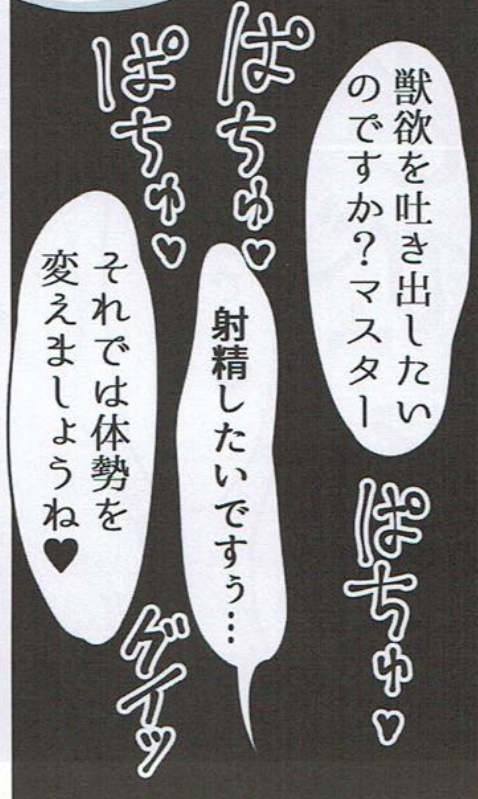 獣欲を吐き出したい
のですか？マスター
ぱちゅ♡
ぱちゅ♡
ぱちゅ♡
射精したいですぅ…
それでは体勢を
変えましょうね♥
グイッ